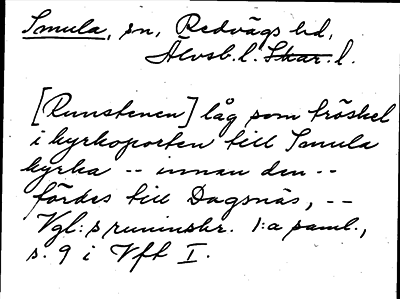 Smula, sn, Redvägs hd,
Älvsb. l. Skar. l.
[Runstenen] låg som tröskel
i kyrkoporten till Smula
kyrka -- innan den --
fördes till Dagsnäs, --
Vgl:s runinskr. 1:a saml.,
s. 9 i Vft I.